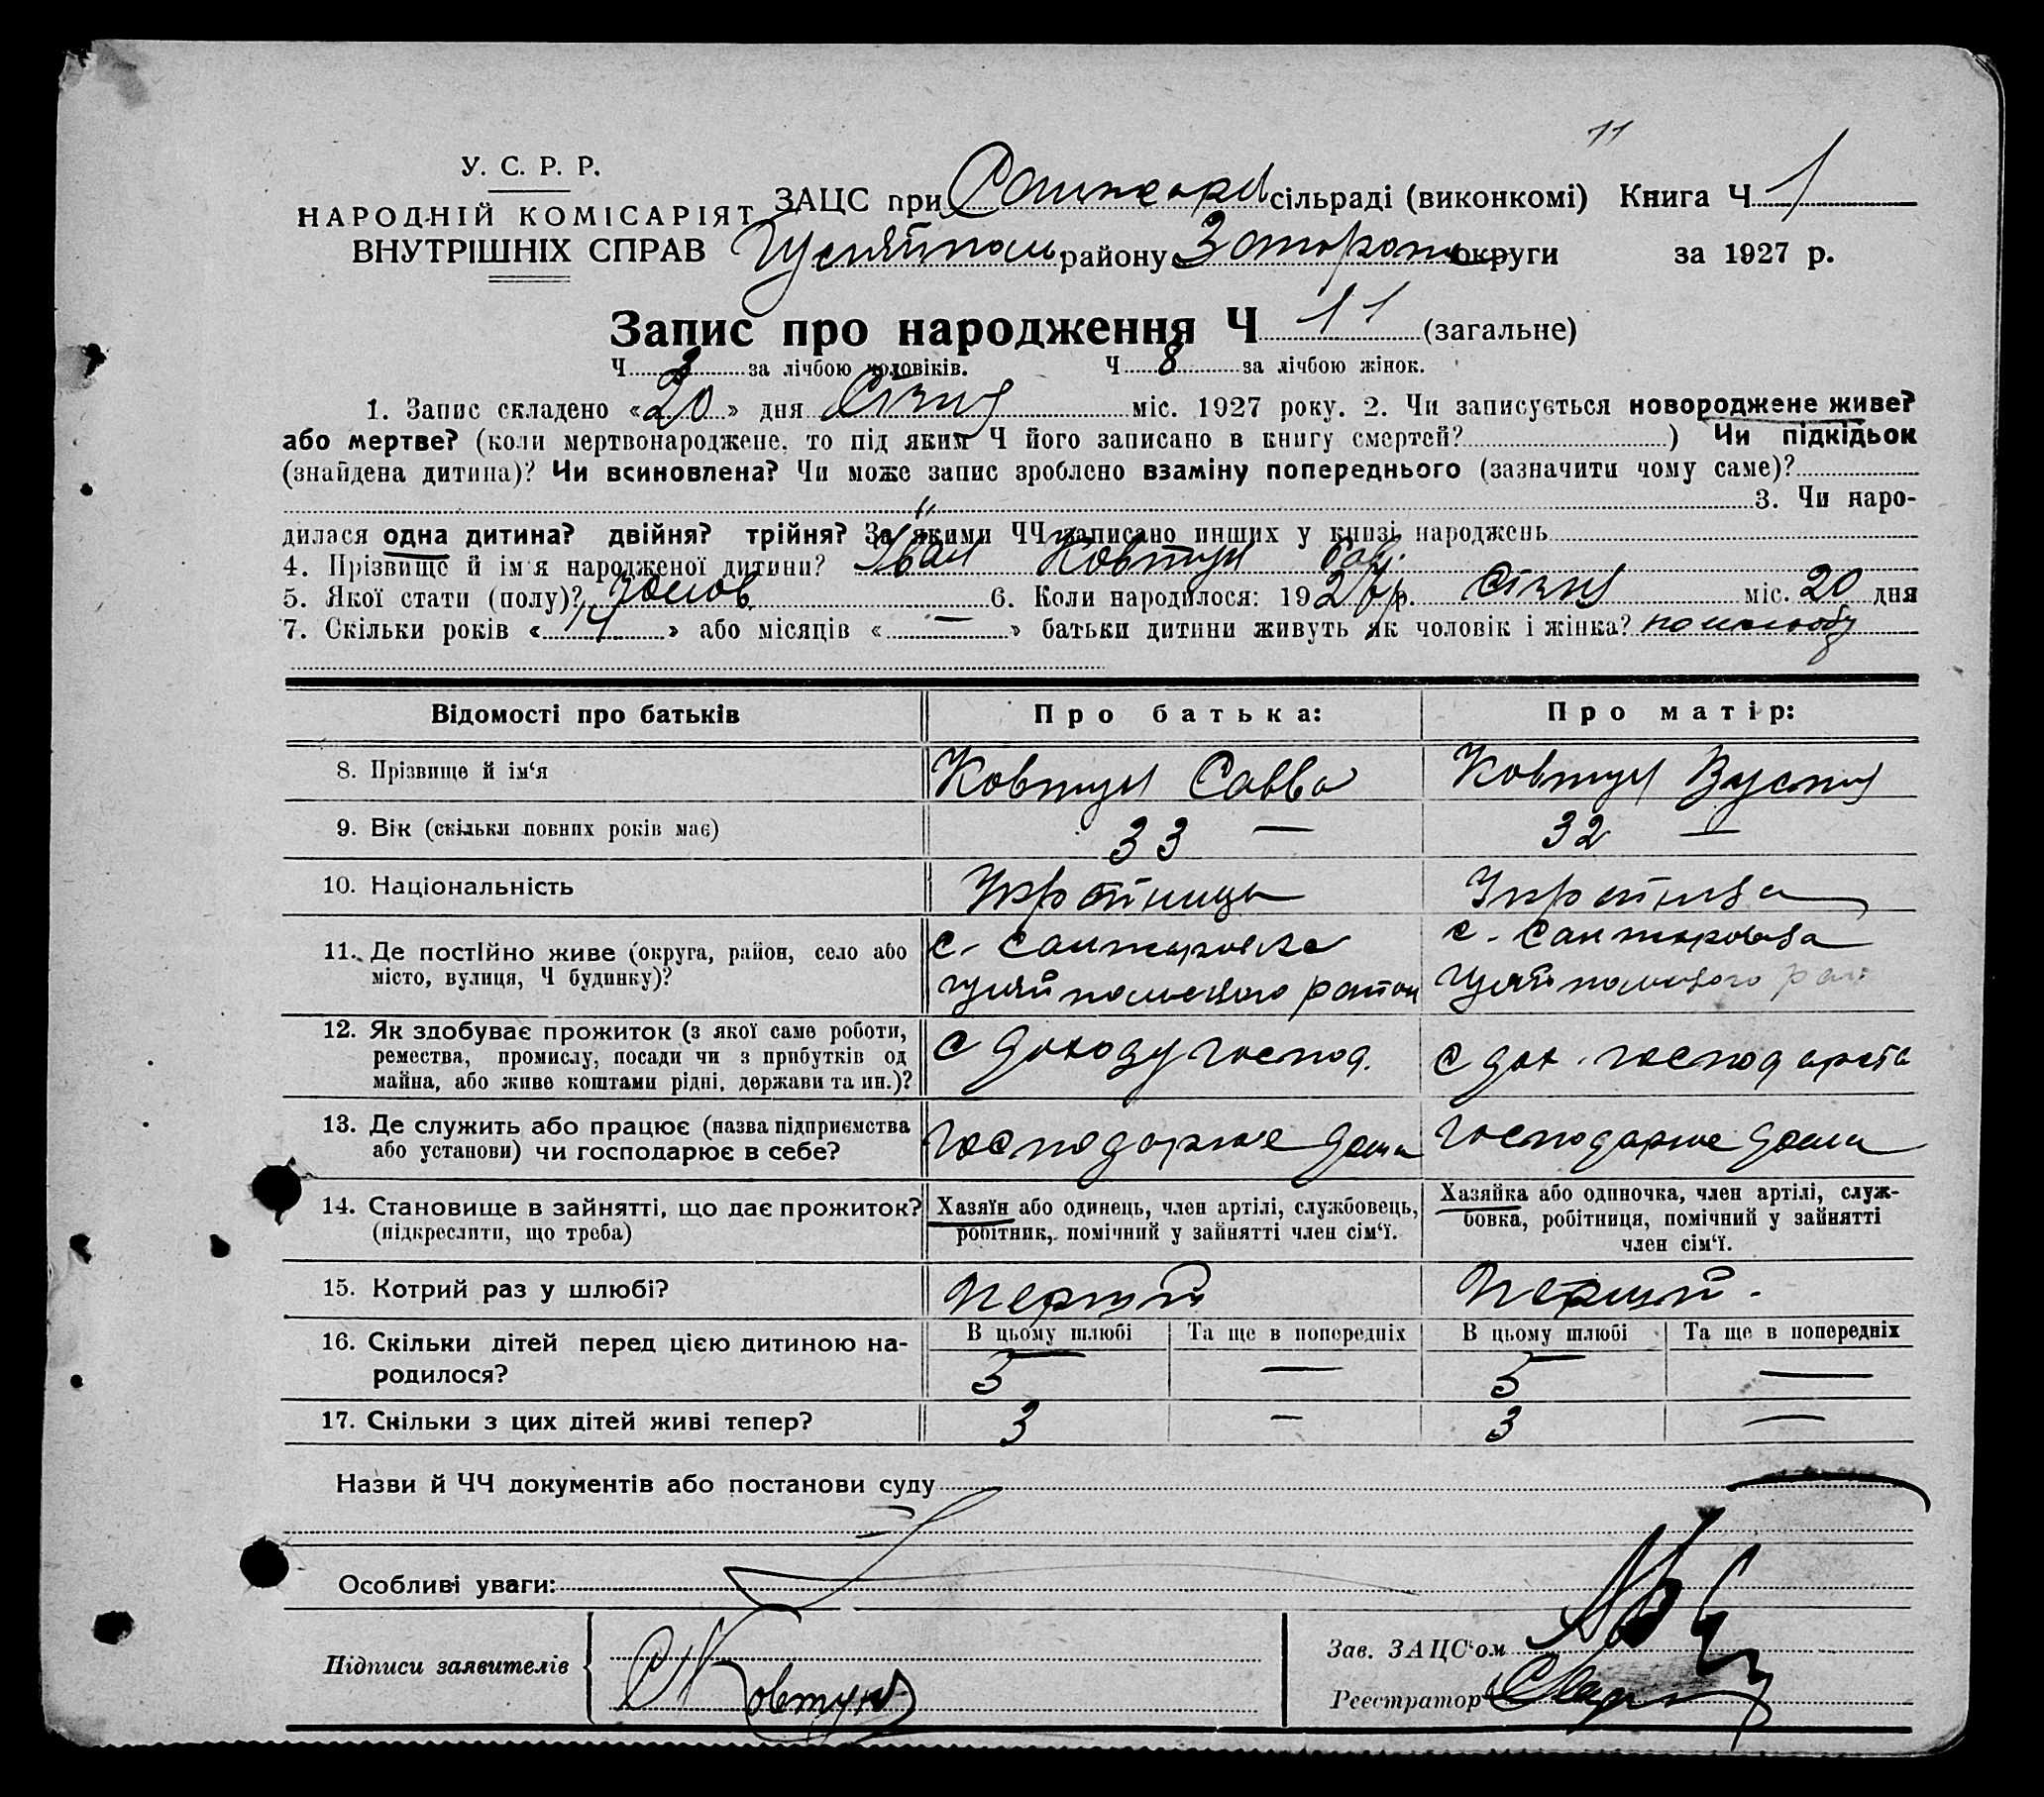 11
У. С. Р. Р.
НАРОДНІЙ КОМІСАРІЯТ
ВНУТРІШНІХ СПРАВ
ЗАЦС при Санжаров сільраді (виконкомі) Книга Ч 1
Гуляйпол району Запорож округи за 1927 р.
Запис про народження Ч 11 (загальне)
Ч 3 за лічбою чоловіків. Ч 8 за лічбою жінок.
1. Запис складено «20» дня Січня міс. 1927 року. 2. Чи записується новороджене живе?
або мертве? (коли мертвонароджене, то під яким Ч його записано в книгу смертей? ) Чи підкідьок
(знайдена дитина)? Чи всиновлена? Чи може запис зроблено взаміну попереднього (зазначити чому саме)?
3. Чи наро-
дилася одна дитина? двійня? трійня? За якими ЧЧ записано инших у книзі народжень
4. Прізвище й ім'я народженої дитини? Іван Ковтун
5. Якої стати (полу)? 6. Коли народилося: 1927 р. Січня міс. 20 дня
7. Скільки років «14» або місяців «—» батьки дитини живуть як чоловік і жінка? по шлюбу
Відомості про батьків Про батька: Про матір:
8. Прізвище й ім‘я Ковтун Савва Ковтун
9. Вік (скільки повних років має) 33 — 32 —
10. Національність Українець Українка
11. Де постійно живе (округа, район, село або
місто, вулиця, Ч будинку)?
с. Санжаровка
Гуляйпольского район
с. Санжаровка
Гуляйпольского рай
12. Як здобуває прожиток (з якої саме роботи,
ремества, промислу, посади чи з прибутків од
майна, або живе коштами рідні, держави та ин.)?
С доходу господ.
С дох. господарства
13. Де служить або працює (назва підприємства
або установи) чи господарює в себе?
Господарює дома
Господарює дома
14. Становище в зайнятті, що дає прожиток?
(підкреслити, що треба)
Хазяїн або одинець, член артілі, службовець,
робітник, помічний у зайнятті член сім‘ї.
Хазяйка або одиночка, член артілі, служ-
бовка, робітниця, помічний у зайнятті
член сім‘ї.
15. Котрий раз у шлюбі? Перший Перший.
16. Скільки дітей перед цією дитиною на-
родилося?
В цьому шлюбі Та ще в попередніх В цьому шлюбі Та ще в попередніх
5 — 5 —
17. Скільки з цих дітей живі тепер? 3 — 3 —
Назви й ЧЧ документів або постанови суду
Особливі уваги:
Підписи заявителів
С Ковтун
Зав. ЗАЦС‘ом
Реєстратор